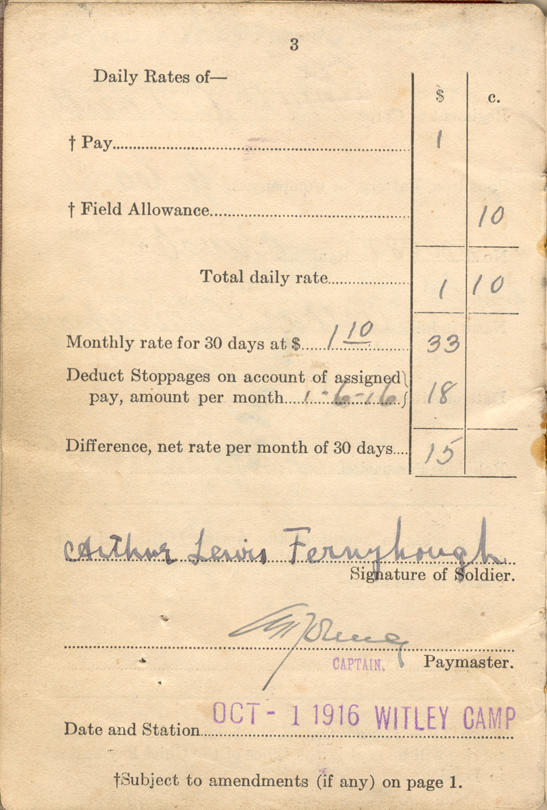 3
Daily Rates of—
$ c.
† Pay.......... 1
† Field Allowance.......... 10
Total daily rate.......... 1 10
Monthly rate for 30 days at $ 1 10 33
Deduct Stoppages on account of assigned
pay, amount per month.......... 1-6-16 18
Difference, net rate per month of 30 days.... 15
Arthur Lewis Fernyhough
Signature of Soldier.
CAPTAIN. Paymaster.
Date and Station OCT - 1 1916 WITLEY CAMP
†Subject to amendments (if any) on page 1.